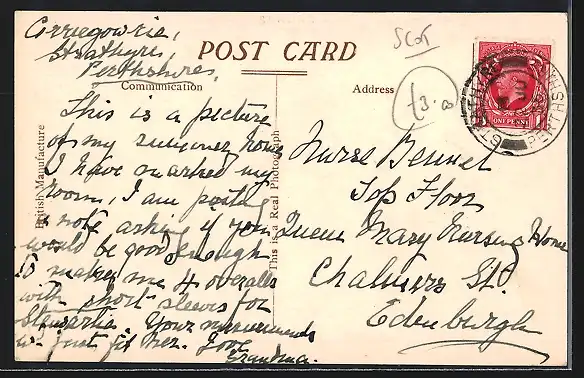 Corriegowrie,
Strathyre,
Perthshire,
SCOT
POST CARD
Communication
Address
£3.00
British Manufacture
This is a Real Photograph
ONE PENNY
STRATHYRE
PERTHSHIRE
This is a picture
of my summer home
I have marked my
room, I am posting
a note asking if you
would be good enough
to make me 4 overalls
with short sleeves for
Your measurements
will just fit her. Love
Grandma.
Nurse Bennet
Top Floor
Queen Mary Nursing Home
Chalmers St.
Edenburgh